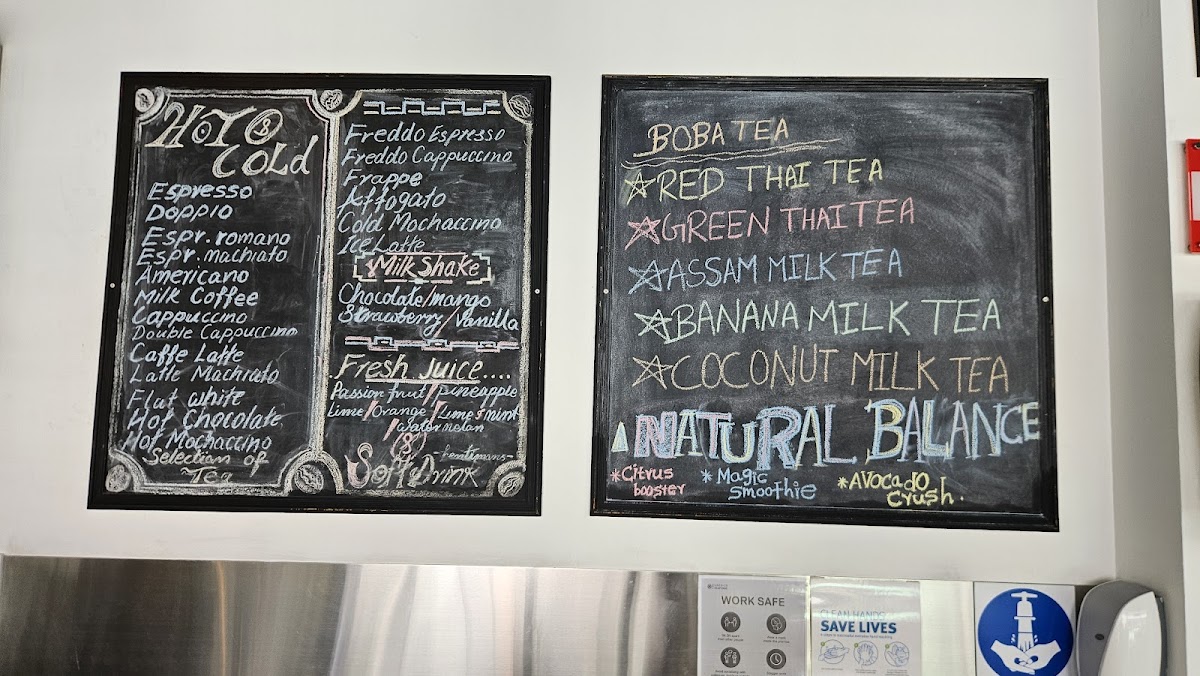 HOT &
COLD
Espresso
Doppio
Espr. romano
Espr. machiato
Americano
Milk Coffee
Cappuccino
Double Cappuccino
Caffe Latte
Latte Machiato
Flat white
Hot Chocolate
Hot Mochaccino
Selection of
Tea
Freddo Espresso
Freddo Cappuccino
Frappe
Affogato
Cold Mochaccino
Ice Latte
Milk Shake
Chocolate/mango
Strawberry/Vanilla
Fresh Juice....
Passion fruit/pineapple
Lime/Orange/Lime & mint
/watermelan
&
Soft Drink
-fentimans-
BOBA TEA
RED THAI TEA
GREEN THAI TEA
ASSAM MILK TEA
BANANA MILK TEA
COCONUT MILK TEA
NATURAL BALANCE
*Citrus
booster
*Magic
smoothie
*AVOCADO
crush.
WORK SAFE
CLEAN HANDS
SAVE LIVES